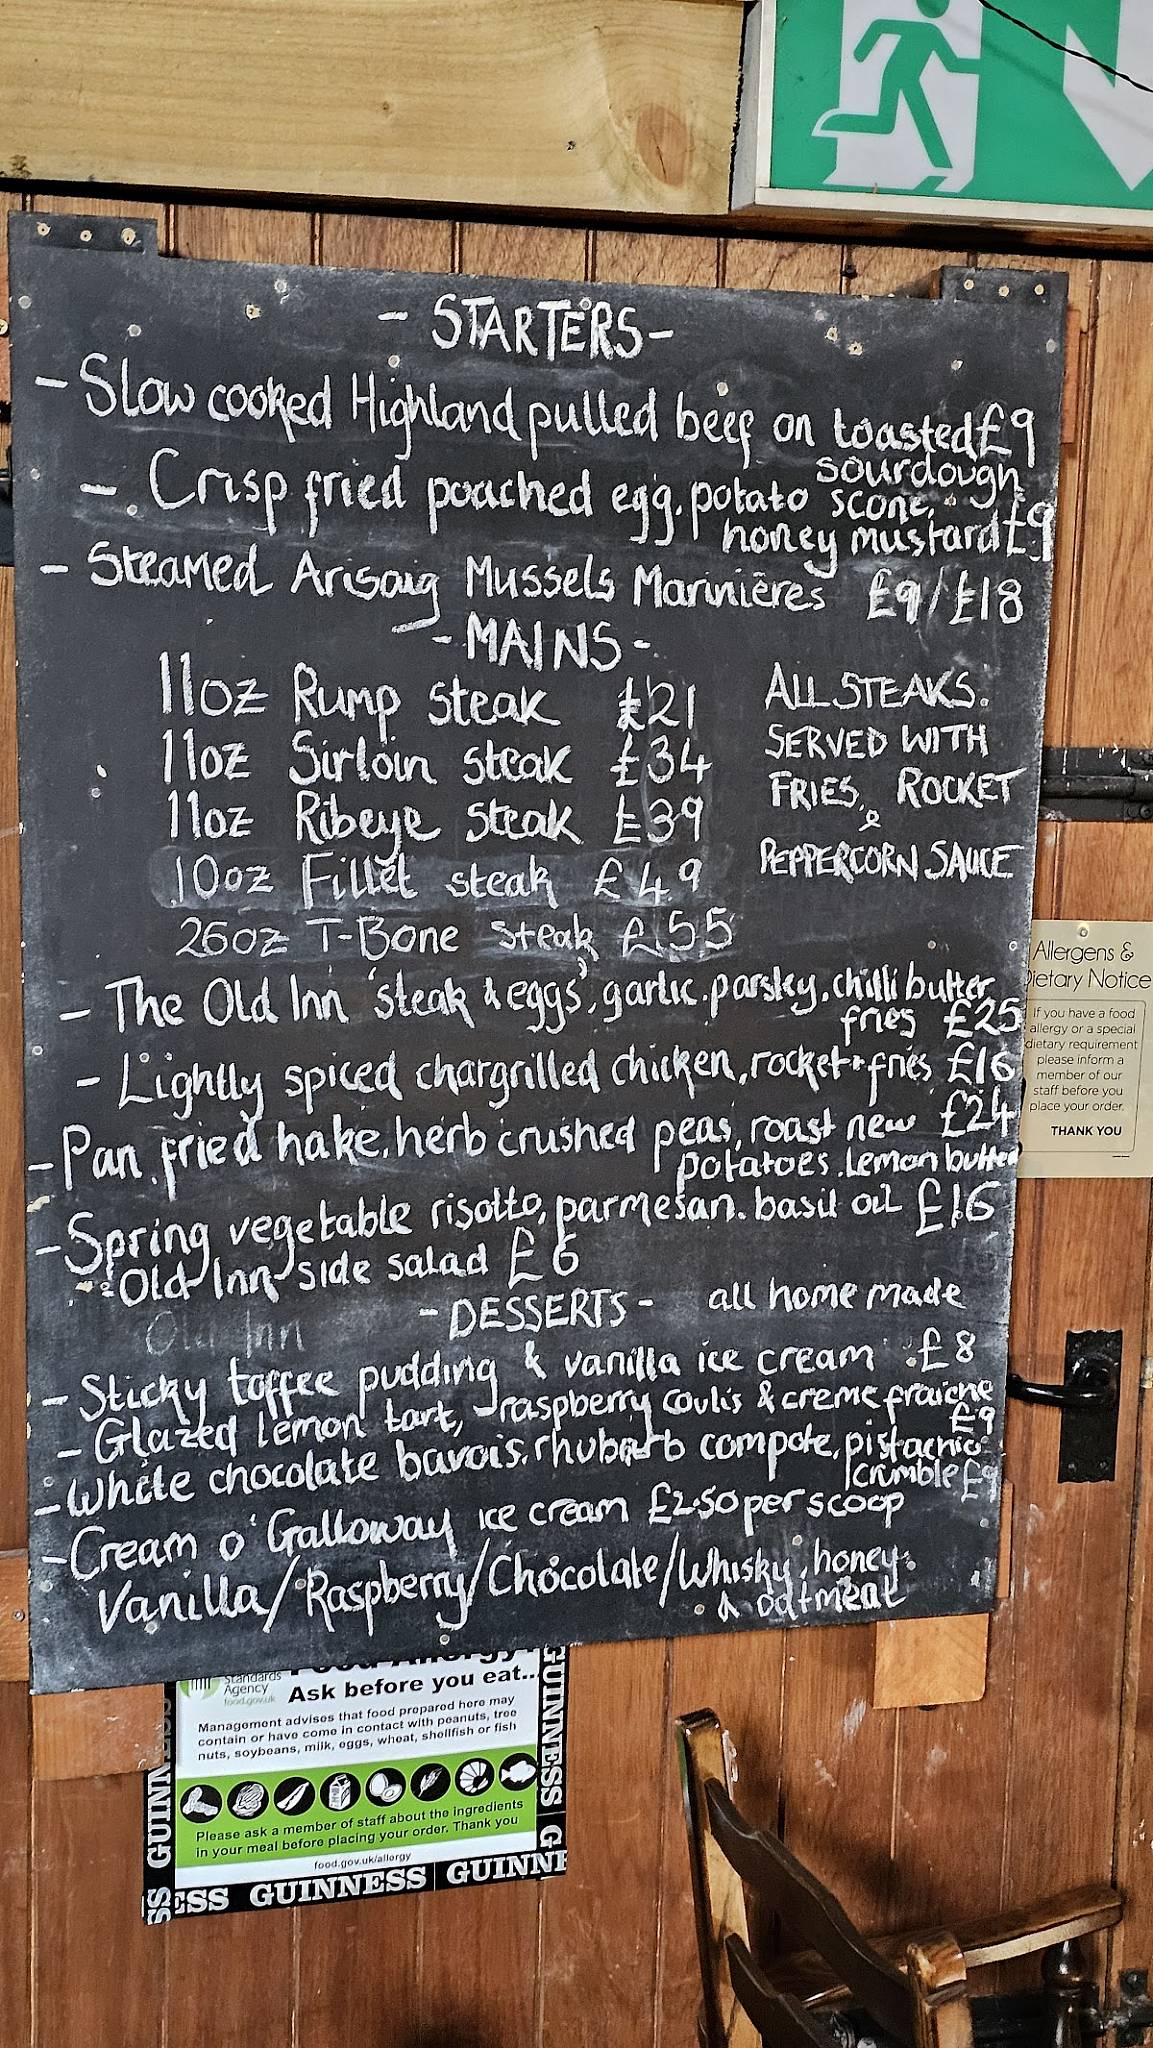 - STARTERS -
- Slow cooked Highland pulled beef on toasted £9
sourdough
- Crisp fried poached egg, potato scone,
honey mustard £9
- Steamed Arisaig Mussels Marinières £9/£18
- MAINS -
11oz Rump steak £21
11oz Sirloin steak £34
11oz Ribeye steak £39
10oz Fillet steak £49
26oz T-Bone steak £55
ALL STEAKS.
SERVED WITH
FRIES, ROCKET
&
PEPPERCORN SAUCE
- The Old Inn 'steak & eggs', garlic, parsley, chilli butter
fries £25
- Lightly spiced chargrilled chicken, rocket + fries £16
- Pan fried hake, herb crushed peas, roast new £24
potatoes. Lemon butter
- Spring vegetable risotto, parmesan. basil oil £16
Old Inn side salad £6
- DESSERTS - all home made
Old Inn
- Sticky toffee pudding & vanilla ice cream £8
- Glazed lemon tart, raspberry coulis & creme fraiche
£9
- White chocolate bavois, rhubarb compote, pistachio
crumble £9
- Cream o' Galloway ice cream £2.50 per scoop
Vanilla/Raspberry/Chocolate/Whisky, honey
& oatmeal
Allergens &
Dietary Notice
If you have a food
allergy or a special
dietary requirement
please inform a
member of our
staff before you
place your order.
THANK YOU
Standards
Agency
food.gov.uk
Food Allergy?
Ask before you eat...
Management advises that food prepared here may
contain or have come in contact with peanuts, tree
nuts, soybeans, milk, eggs, wheat, shellfish or fish
Please ask a member of staff about the ingredients
in your meal before placing your order. Thank you
food.gov.uk/allergy
GUINNESS
GUINNESS
GUINNESS GUINNE